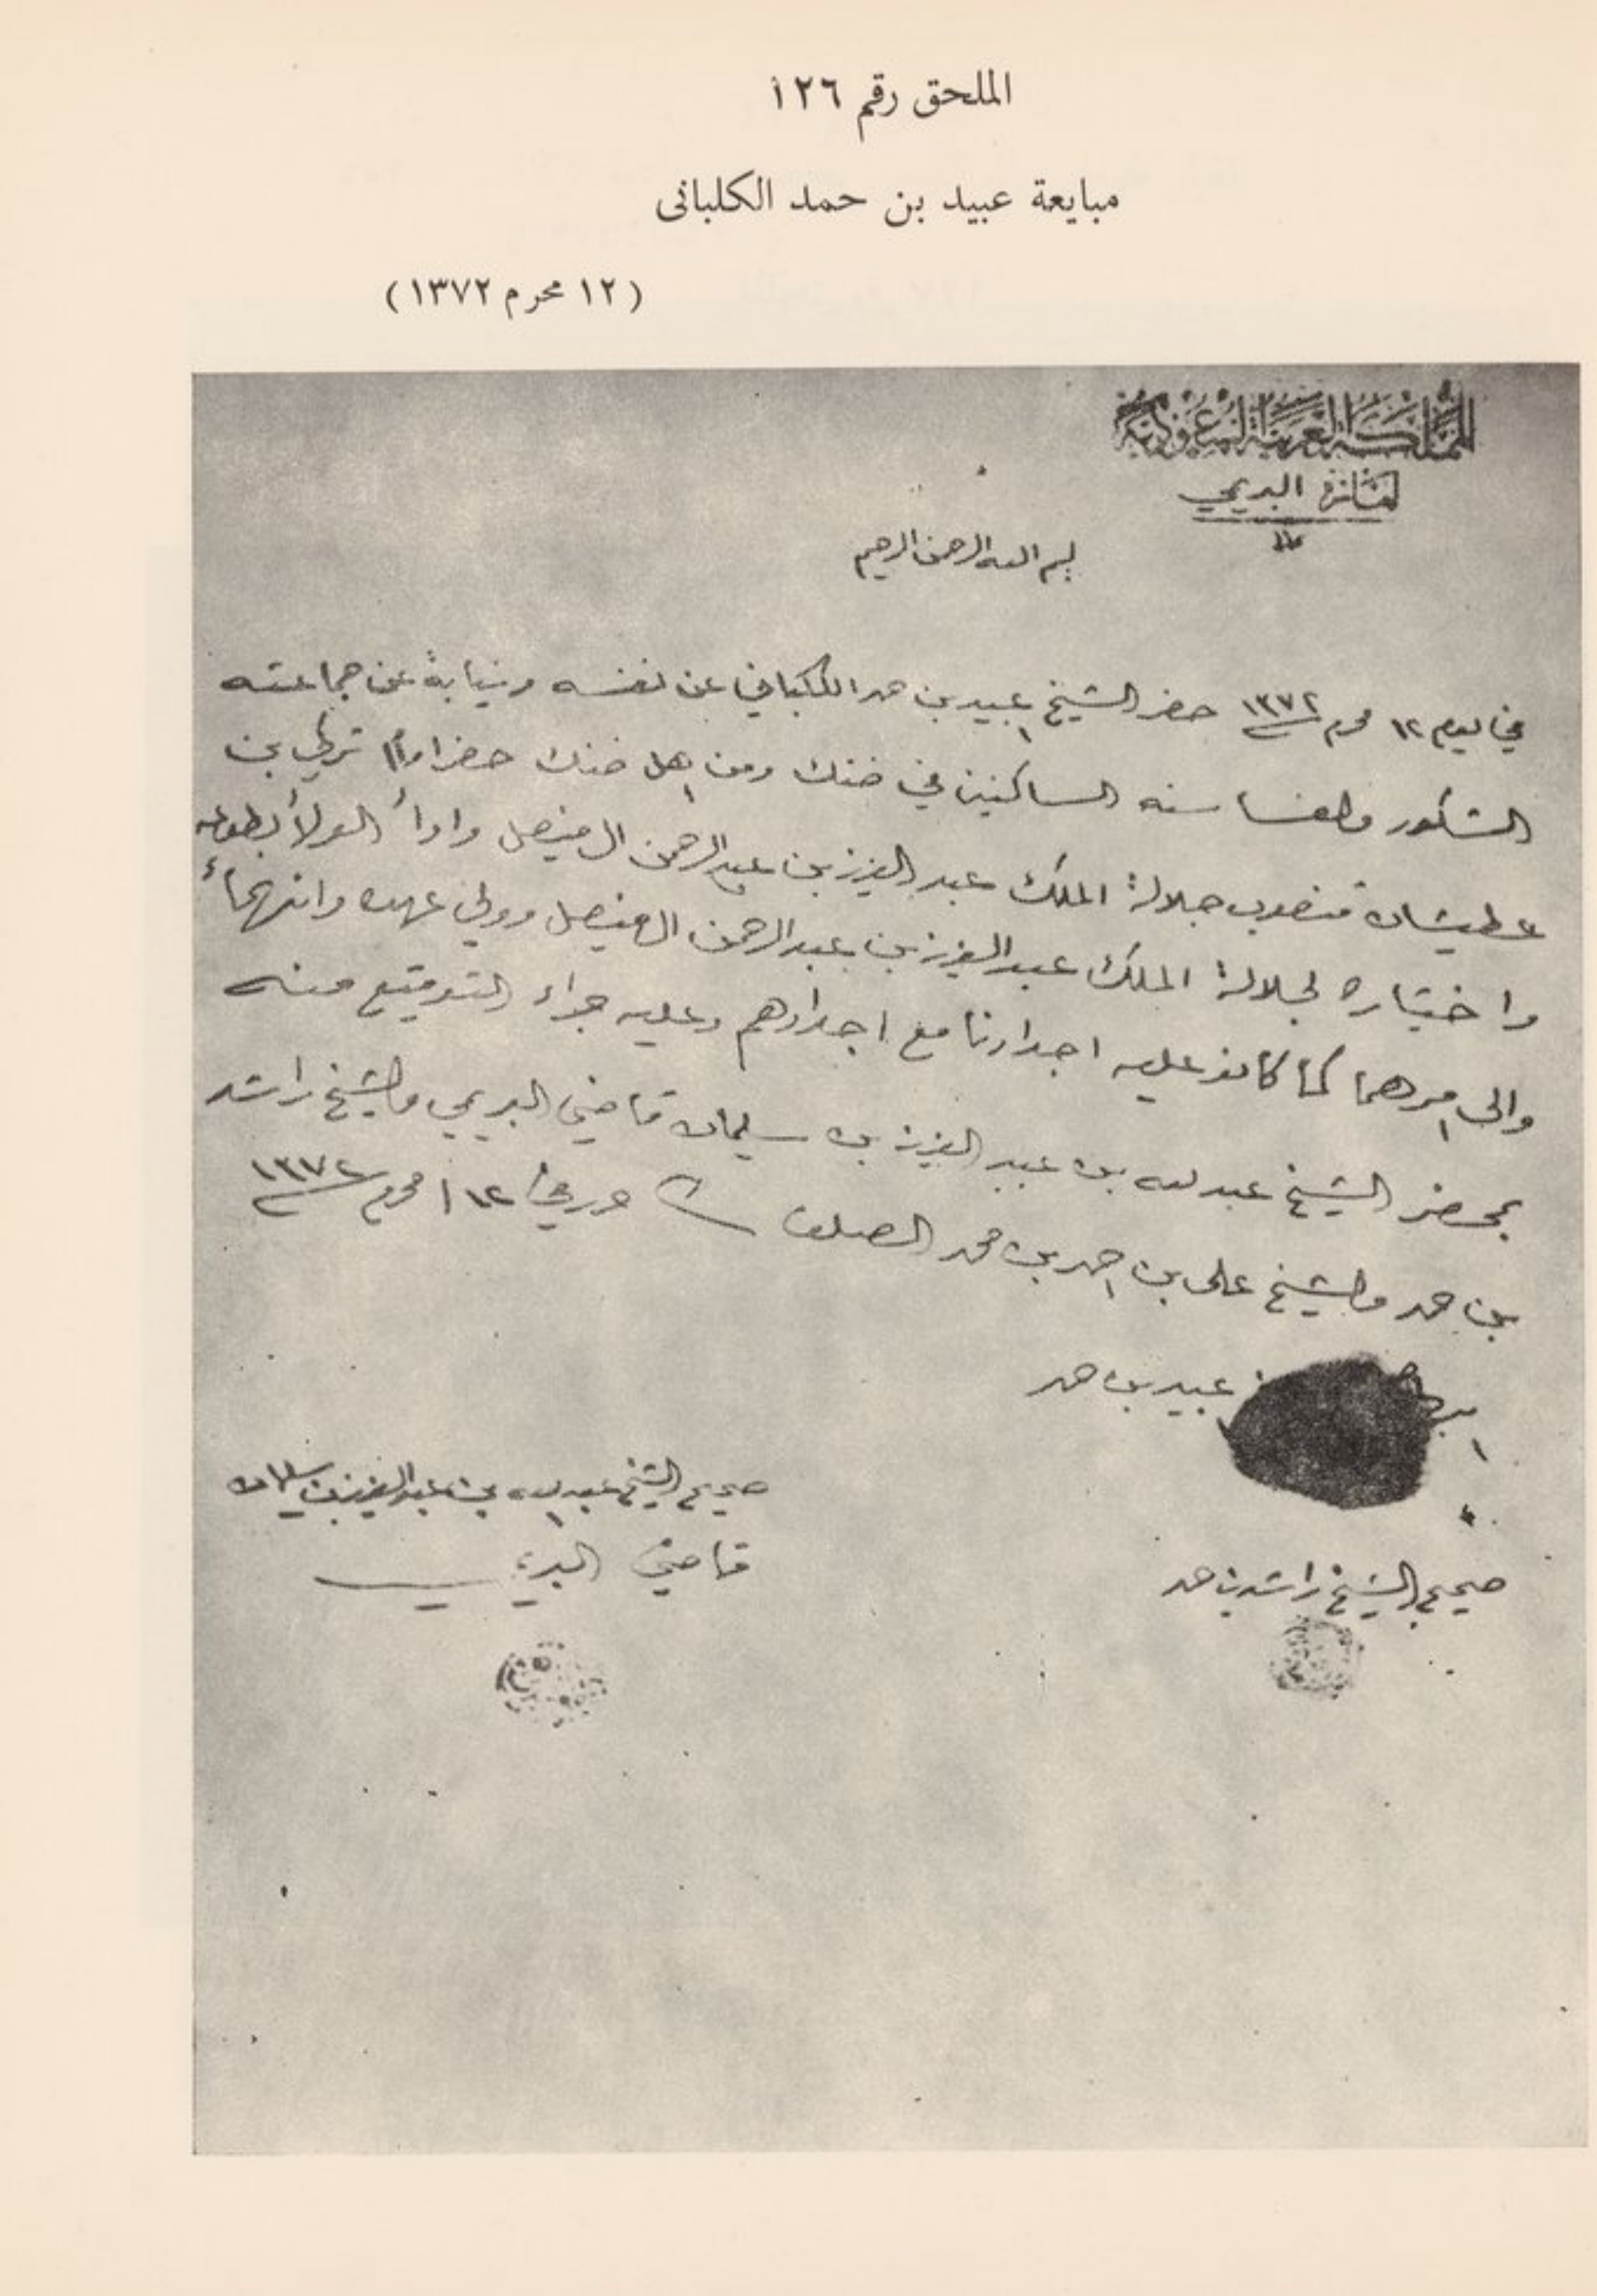 الملحق رقم ١٢٦
مبايعة عبيد بن حمد الكلبانى
(١٢ محرم ١٣٧٢)
المملكة العربية السعودية
البريمي
بسم الله الرحمن الرحيم
في يوم ١٢ محرم ١٣٧٢ حضر الشيخ عبيد بن حمد الكلباني عن نفسه ونيابةً عن جماعته
الشكور والغساسنه الساكنين في ضنك ومن اهل ضنك حضر امام تركي بن
عطيشان مندوب جلالة الملك عبد العزيز بن عبد الرحمن ال فيصل وادا الولا بطوعه
واختياره لجلالة الملك عبد العزيز بن عبد الرحمن الفيصل وولي عهده وانهما
والى امرهما كما كانو عليه اجدادنا مع اجدادهم وعليه جراء التوقيع منه
بمحضر الشيخ عبد الله بن عبد العزيز بن سليمان قاضي البريمي والشيخ راشد
بن حمد والشيخ على بن احمد بن محمد الصلف حرر في ١٢ محرم ١٣٧٢
عبيد بن حمد
صحيح الشيخ عبد الله بن عبد العزيز بن سليمان
قاضي البريمي
صحيح الشيخ راشد بن حمد